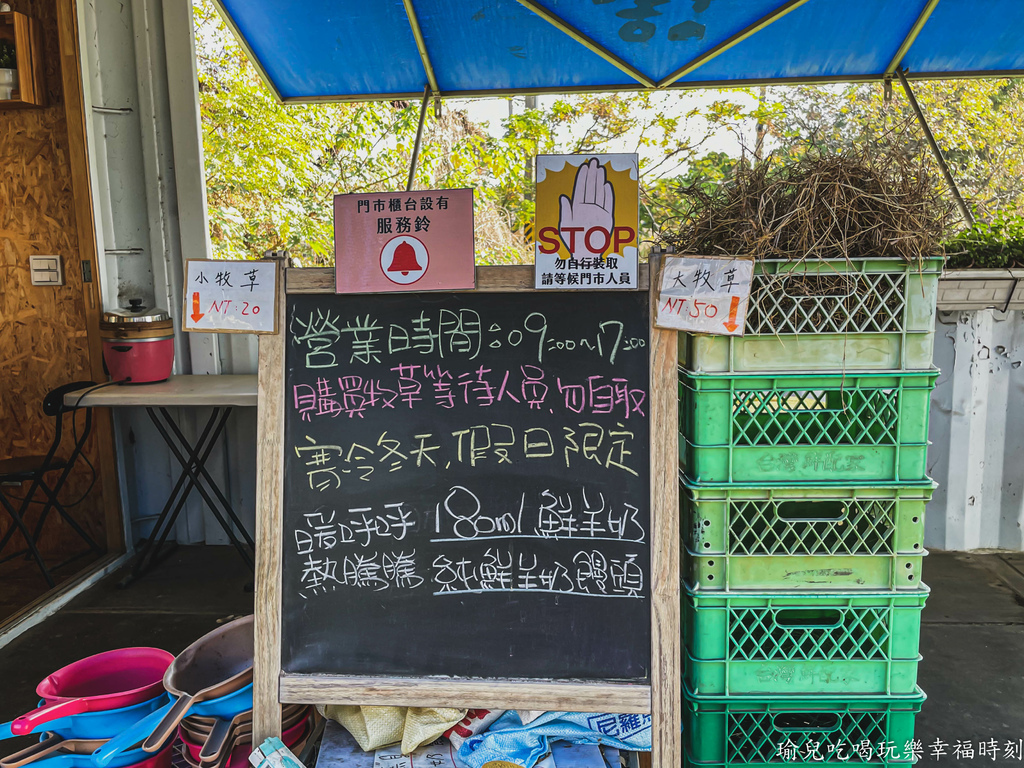 門市櫃台設有
服務鈴
STOP
勿自行裝取
請等候門市人員
小牧草
NT:20
大牧草
NT:50
營業時間:09:00~17:00
購買牧草等待人員,勿自取
寒冷冬天,假日限定
暖呼呼 180ml 鮮羊奶
熱騰騰 純鮮羊奶饅頭
尼羅
瑜兒吃喝玩樂幸福時刻